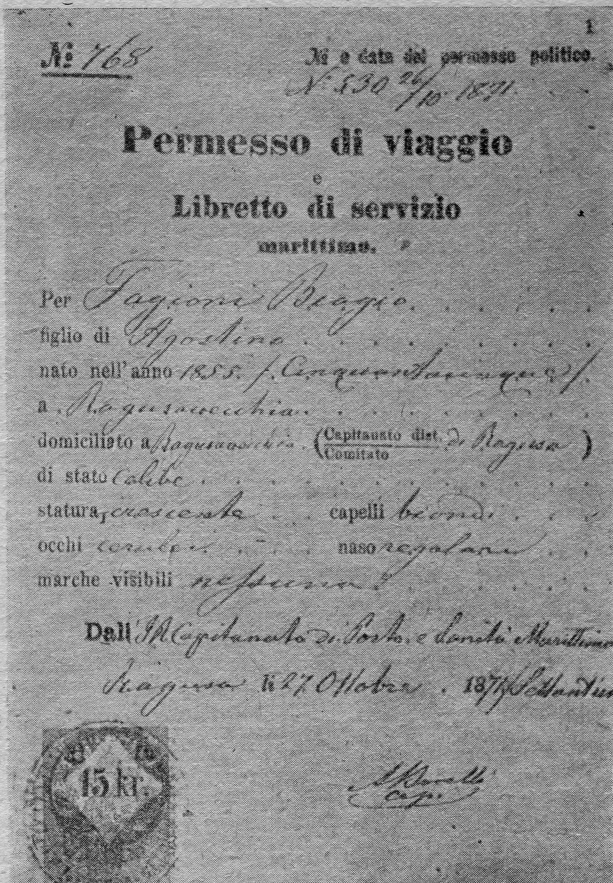 1
№ 768
№ e data del permesso politico.
N. 530 26/10 1871.
Permesso di viaggio
e
Libretto di servizio
marittimo.
Per Fagioni Biagio
figlio di Agostino
nato nell'anno 1855. /. Cinquantacinque /.
a Ragusavecchia
domiciliato a Ragusavecchia (Capitanato dist. Comitato di Ragusa)
di stato celibe
statura, crescente capelli biondi
occhi cerulei naso regolare
marche visibili nessuna
Dall' I R Capitanato di Porto e Sanità Marittima
Ragusa li 27 Ottobre 1871
15 kr.
Cap.